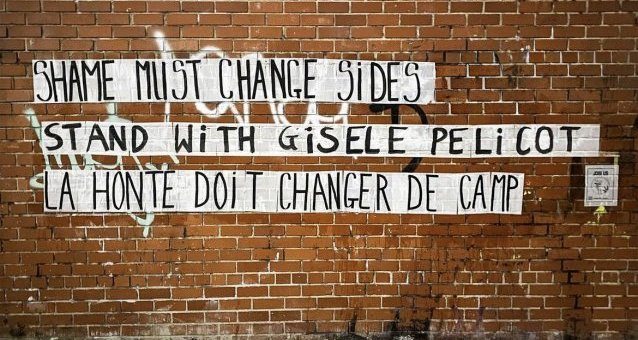 SHAME MUST CHANGE SiDES
STAND WiTH GiSELE PELiCOT
LA HONTE DOiT CHANGER DE CAMP
JOIN US